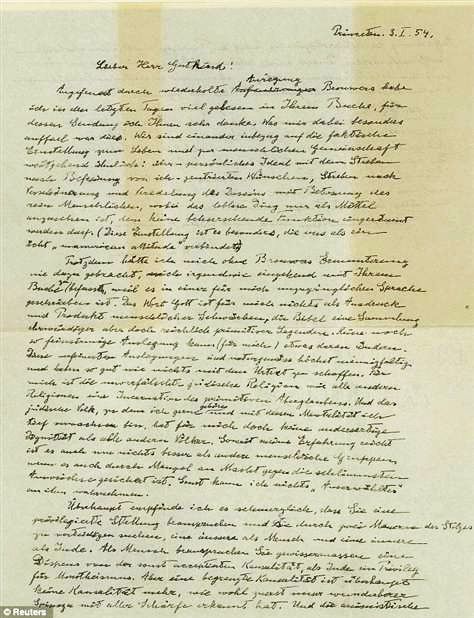 Princeton. 3. I. 54.
Lieber Herr Gutkind!
Anregung
Angefeuert durch wiederholte Brouwers habe
ich in den letzten Tagen viel gelesen in Ihrem Buche, für
dessen Sendung ich Ihnen sehr danke. Was mir dabei besonders
auffiel war dies. Wir sind einander inbezug auf die faktische
Einstellung zum Leben und zur menschlichen Gemeinschaft
weitgehend ähnlich: persönliches Ideal mit dem Streben
nach Befreiung von ich-zentrierten Wünschen, Streben nach
Verschönerung und Veredelung des Daseins mit Betonung des
rein Menschlichen, wobei das leblose Ding nur als Mittel
anzusehen ist, dem keine beherrschende Funktion eingeräumt
werden darf. (Diese Einstellung ist es besonders, die uns als ein
echt „unamerican attitude" verbindet)
Trotzdem hätte ich mich ohne Brouwers Ermunterung
nie dazu gebracht, mich irgendwie eingehend mit Ihrem
Buche zu befassen, weil es in einer für mich unzugänglichen Sprache
geschrieben ist. Das Wort Gott ist für mich nichts als Ausdruck
und Produkt menschlicher Schwächen, die Bibel eine Sammlung
ehrwürdiger aber doch reichlich primitiver Legenden. Keine noch
so feinsinnige Auslegung kann (für mich) etwas daran ändern.
Diese verfeinerten Auslegungen sind naturgemäss höchst mannigfaltig
und haben so gut wie nichts mit dem Urtext zu schaffen. Für
mich ist die unverfälschte jüdische Religion wie alle anderen
Religionen eine Incarnation des primitiven Aberglaubens. Und das
jüdische Volk, zu dem ich gerne gehöre und mit dessen Mentalität ich
tief verwachsen bin, hat für mich doch keine andersartige
Dignität als alle anderen Völker. Soweit meine Erfahrung reicht
ist es auch um nichts besser als andere menschliche Gruppen
wenn es auch durch Mangel an Macht gegen die schlimmsten
Auswüchse gesichert ist. Sonst kann ich nichts „Auserwähltes"
an ihm wahrnehmen.
Überhaupt empfinde ich es schmerzlich, dass Sie eine
privilegierte Stellung beanspruchen und sie durch zwei Mauern des Stolzes
zu verteidigen suchen, eine äussere als Mensch und eine innere
als Jude. Als Mensch beanspruchen Sie gewissermassen einen
Dispens von der sonst acceptierten Kausalität, als Jude ein Privileg
für Monotheismus. Aber eine begrenzte Kausalität ist überhaupt
keine Kausalität mehr, wie wohl zuerst unser wunderbarer
Spinoza mit aller Schärfe erkannt hat. Und die animistische
© Reuters